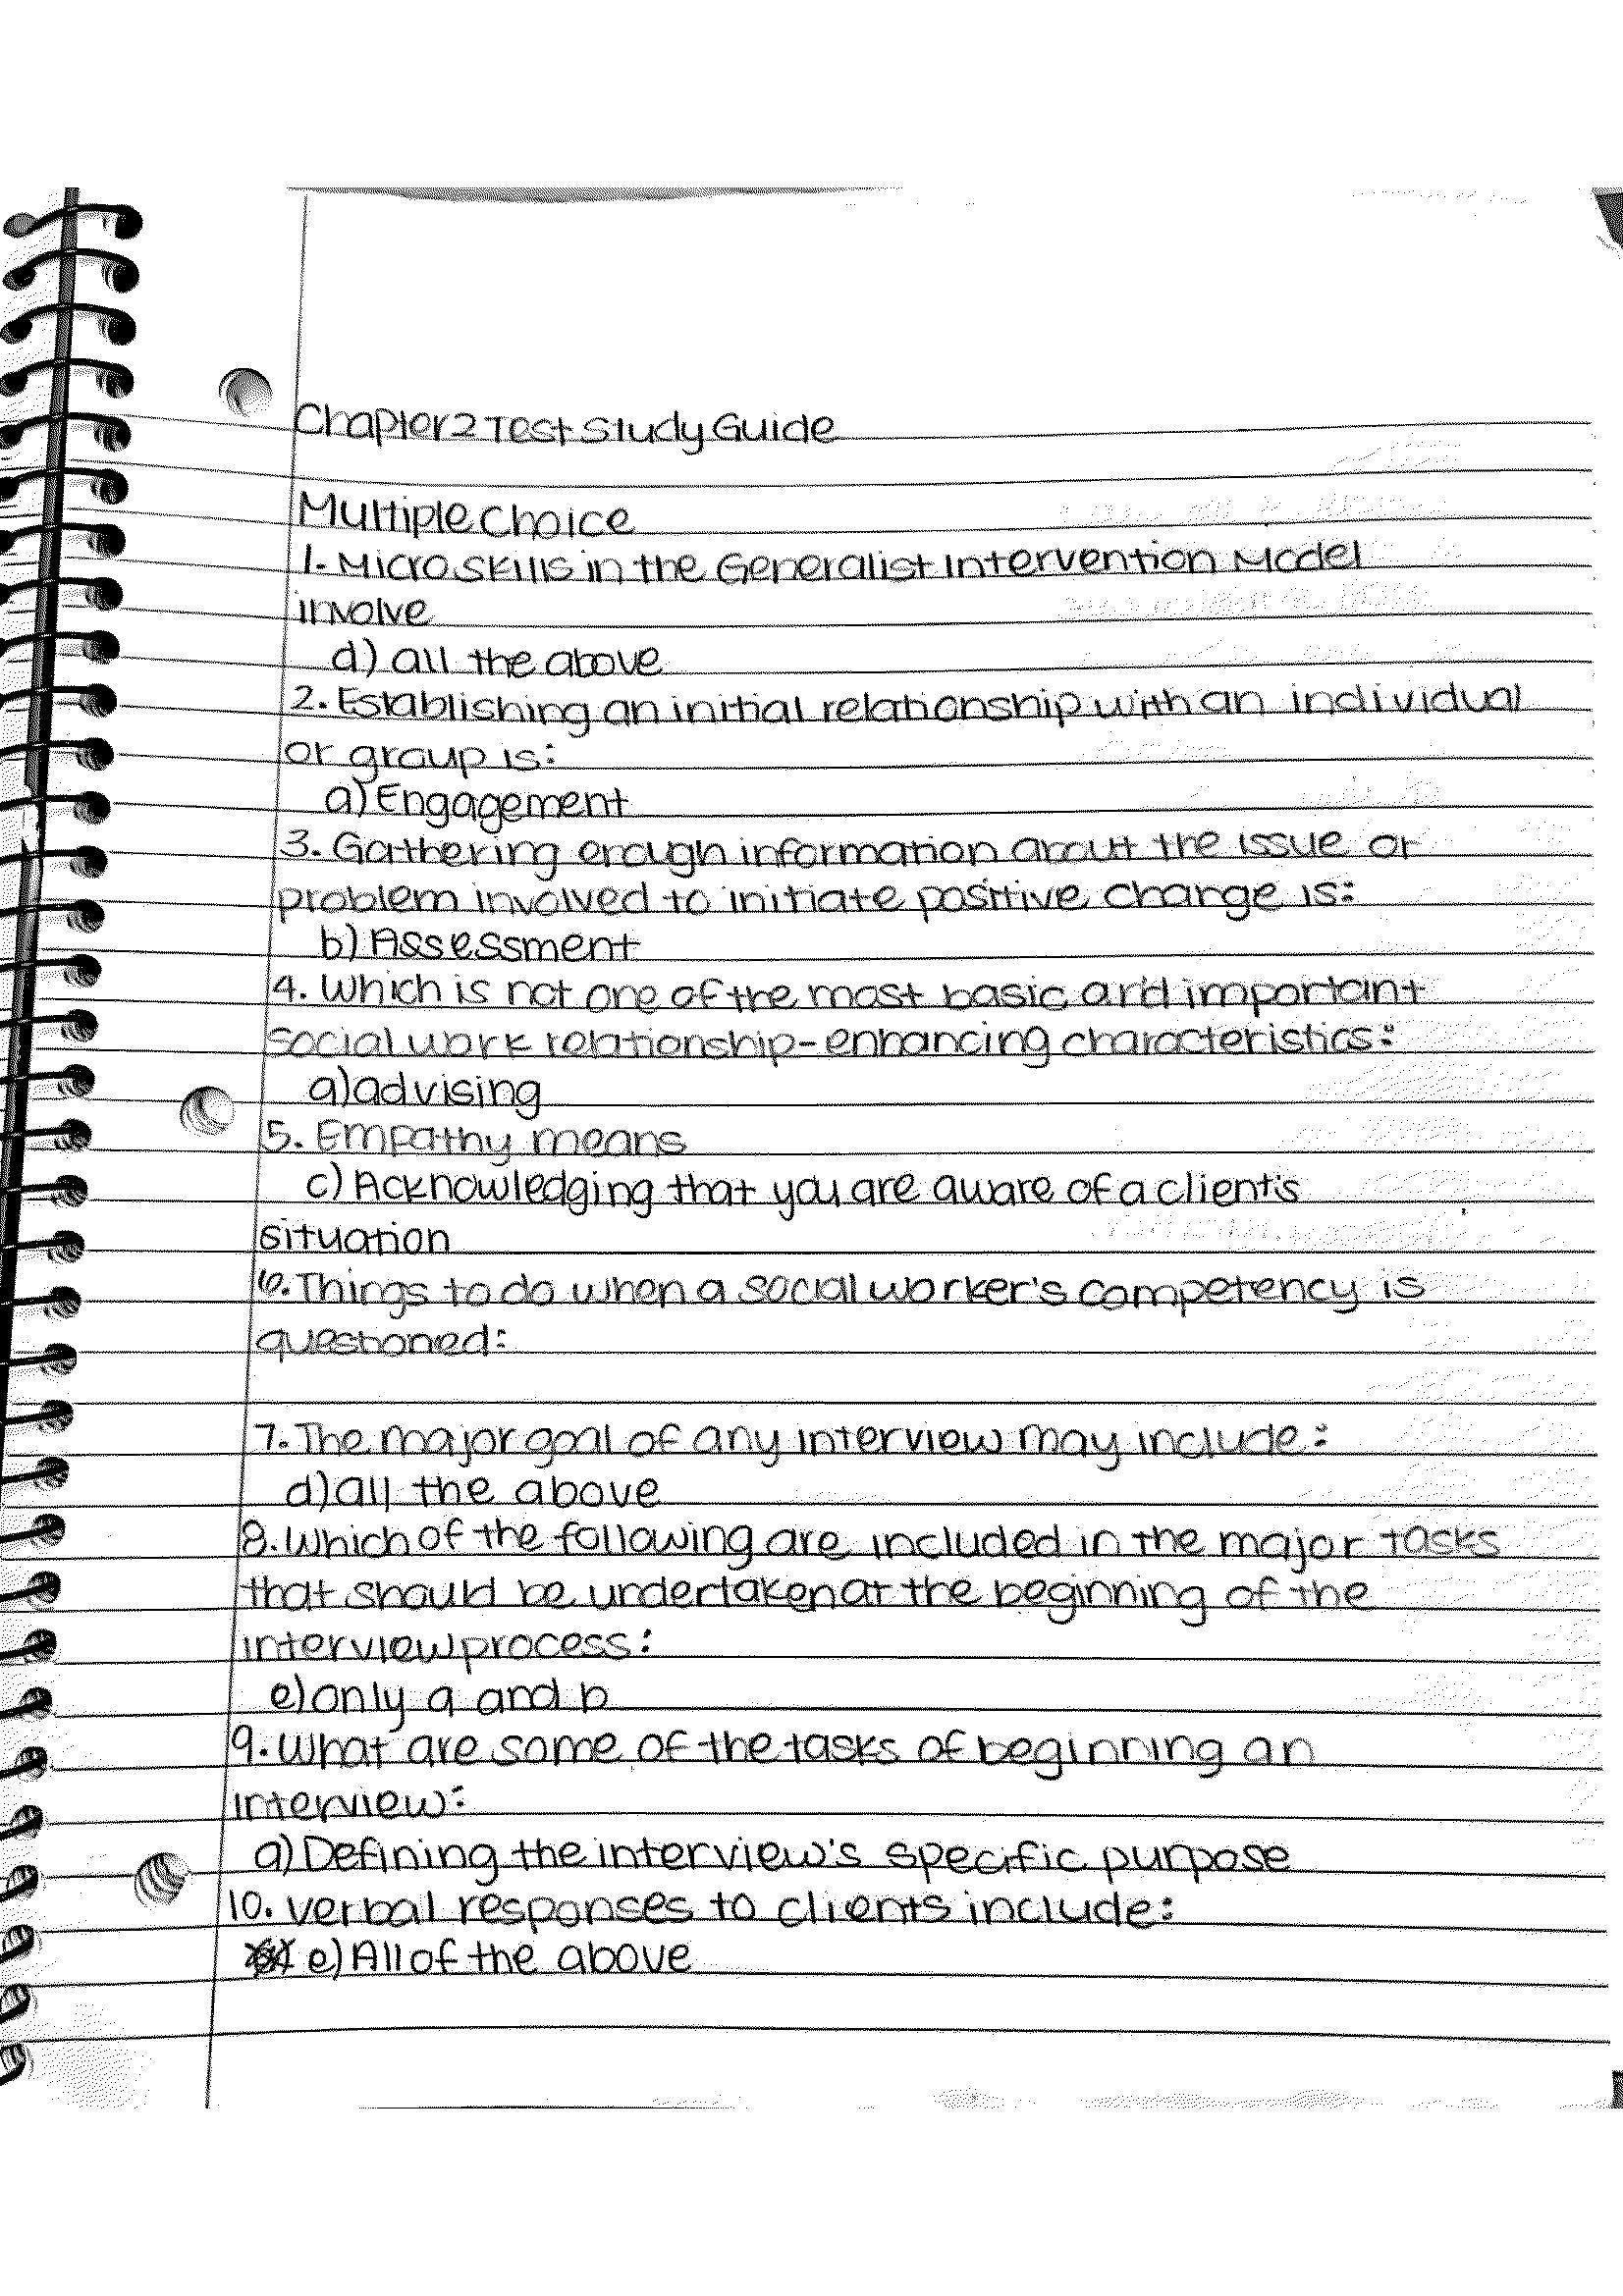 Chapter 2 Test Study Guide
Multiple Choice
1. Micro skills in the Generalist Intervention Model
involve
d) all the above
2. Establishing an initial relationship with an individual
or group is:
a) Engagement
3. Gathering enough information about the issue or
problem involved to initiate positive change is:
b) Assessment
4. Which is not one of the most basic and important
social work relationship-enhancing characteristics:
a) advising
5. Empathy means
c) Acknowledging that you are aware of a client's
situation
6. Things to do when a social worker's competency is
questioned:
7. The major goal of any interview may include:
d) all the above
8. Which of the following are included in the major tasks
that should be undertaken at the beginning of the
interview process:
e) only a and b
9. What are some of the tasks of beginning an
interview:
a) Defining the interview's specific purpose
10. Verbal responses to clients include:
e) All of the above